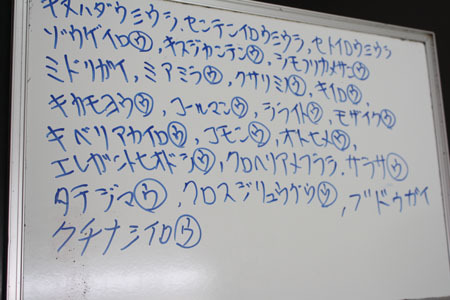 キヌハダウミウシ, センテンイロウミウシ, セトイロウミウシ
ゾウゲイロ㋒, キスジカンテン㋒, シモフリカメサン㋒
ミドリガイ, ミアミラ㋒, クサリミノ㋒, キイロ㋒,
キカモヨウ㋒, コールマン㋒, シライト㋒, モザイク㋒
キベリアカイロ㋒, コモン㋒, オトヒメ㋒,
エレガントヒオドシ㋒, クロヘリアメフラシ, サラサ㋒
タテジマ㋒, クロスジリュウグウ㋒, ブドウガイ
クチナシイロ㋒